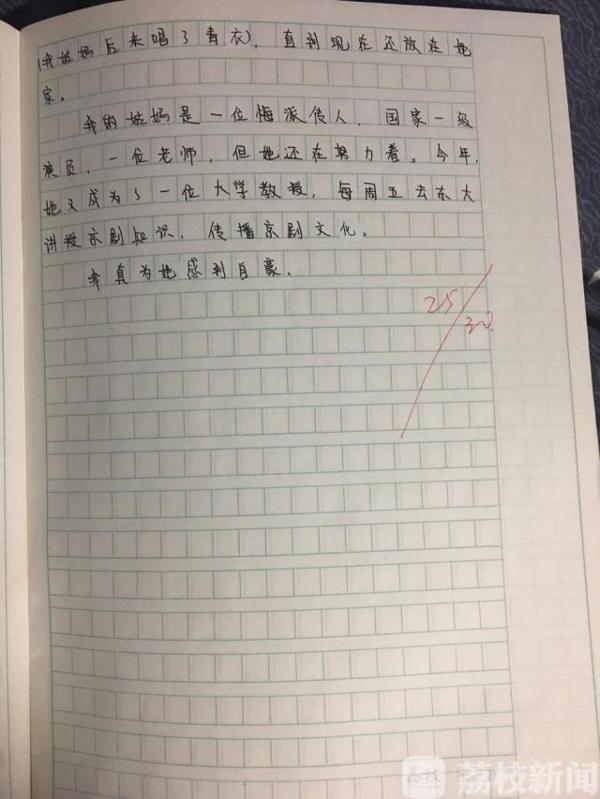 (我姑妈后来唱了青衣)，直到现在还放在她
家。
我的姑妈是一位梅派传人，国家一级
演员，一位老师，但她还在努力着。今年，
她又成为了一位大学教授，每周五去东大
讲授京剧知识，传播京剧文化。
我真为她感到自豪。
25/30
荔枝新闻